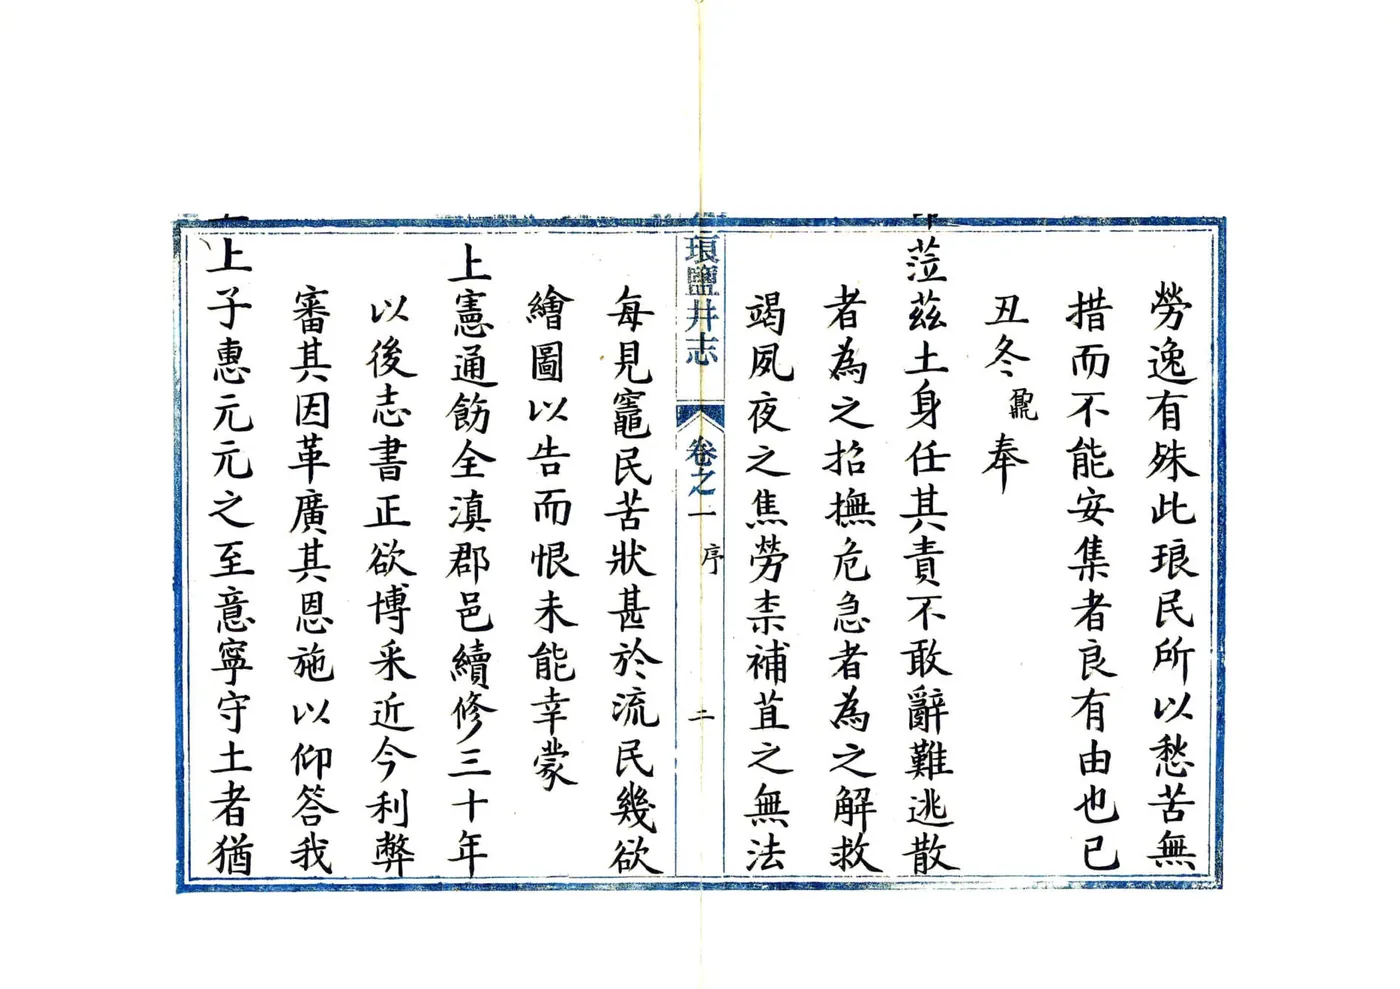 勞逸有殊此琅民所以愁苦無
措而不能安集者良有由也已
丑冬鼐奉
蒞茲土身任其責不敢辭難逃散
者為之招撫危急者為之解救
竭夙夜之焦勞柰補苴之無法
琅鹽井志 卷之一 序 二
每見竈民苦狀甚於流民幾欲
繪圖以告而恨未能幸蒙
上憲通飭全滇郡邑續修三十年
以後志書正欲博采近今利弊
審其因革廣其恩施以仰答我
上子惠元元之至意寧守土者猶